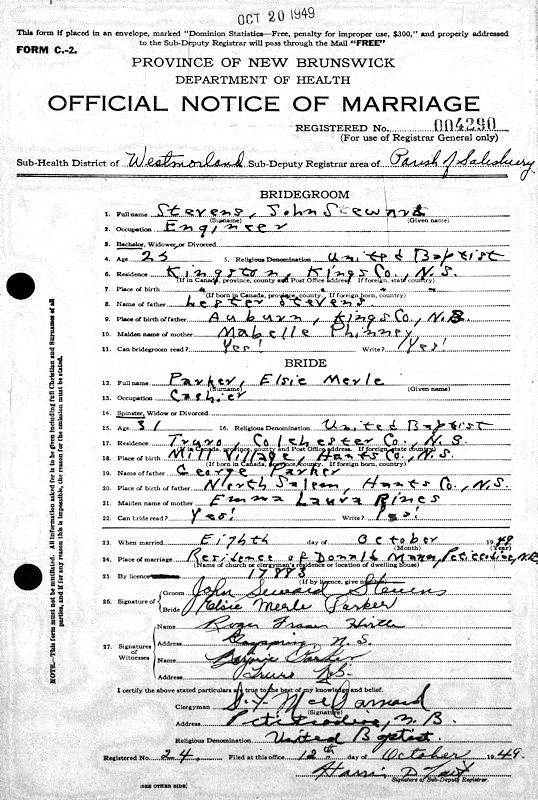 OCT 20 1949
This form if placed in an envelope, marked "Dominion Statistics—Free, penalty for improper use, $300," and properly addressed
to the Sub-Deputy Registrar will pass through the Mail "FREE"
FORM C.-2.
PROVINCE OF NEW BRUNSWICK
DEPARTMENT OF HEALTH
OFFICIAL NOTICE OF MARRIAGE
REGISTERED No. 004290
(For use of Registrar General only)
Sub-Health District of Westmorland Sub-Deputy Registrar area of Parish of Salisbury
BRIDEGROOM
1. Full name Stevens, John Seward
(Surname) (Given name)
2. Occupation Engineer
3. Bachelor, Widower or Divorced
4. Age 25 5. Religious Denomination United Baptist
6. Residence Kingston, Kings Co., N.S.
(If in Canada, province, county and Post Office address. If foreign, state country)
7. Place of birth
(If born in Canada, province, county. If foreign born, country)
8. Name of father Lester Stevens
9. Place of birth of father Auburn, Kings Co., N.S.
10. Maiden name of mother Mabelle Phinney
11. Can bridegroom read? Yes! Write? Yes!
BRIDE
12. Full name Parker, Elsie Merle
(Surname) (Given name)
13. Occupation Cashier
14. Spinster, Widow or Divorced
15. Age 31 16. Religious Denomination United Baptist
17. Residence Truro, Colchester Co., N.S.
(If in Canada, province, county and Post Office address. If foreign state country)
18. Place of birth Mill Village, Hants Co., N.S.
(If born in Canada, province, county. If foreign born, country)
19. Name of father George Parker
20. Place of birth of father North Salem, Hants Co., N.S.
21. Maiden name of mother Emma Laura Rines
22. Can bride read? Yes! Write? Yes!
23. When married Eighth day of October 1949
(Month) (Year)
24. Place of marriage Residence of Donald Mann, Petitcodiac, N.B.
(Name of church or clergyman's residence or location of dwelling house)
25. By licence 17883
(If by licence, give number)
26. Signature of Groom John Seward Stevens
Bride Elsie Merle Parker
27. Signatures of Witnesses
Name Roger Fraser Hirtle
Address N.S.
Name Marjorie Parker
Address Truro N.S.
I certify the above stated particulars are true to the best of my knowledge and belief.
Clergyman
(Signature)
Address Petitcodiac, N.B.
Religious Denomination United Baptist
Registered No. 24. Filed at this office 12th day of October 1949.
Harris
Signature of Sub-Deputy Registrar.
(SEE OTHER SIDE)
NOTE.—This form must not be mutilated. All information asked for is to be given including full Christian and Surnames of all
parties, and if for any reason this is impossible, the reason for the omission must be stated.